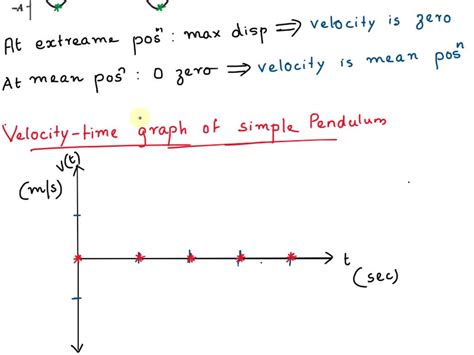 -A
At extreame posⁿ : max disp ⇒ velocity is zero
At mean posⁿ : 0 zero ⇒ velocity is mean posⁿ
Velocity-time graph of simple Pendulum
v(t)
(m/s)
t
(sec)